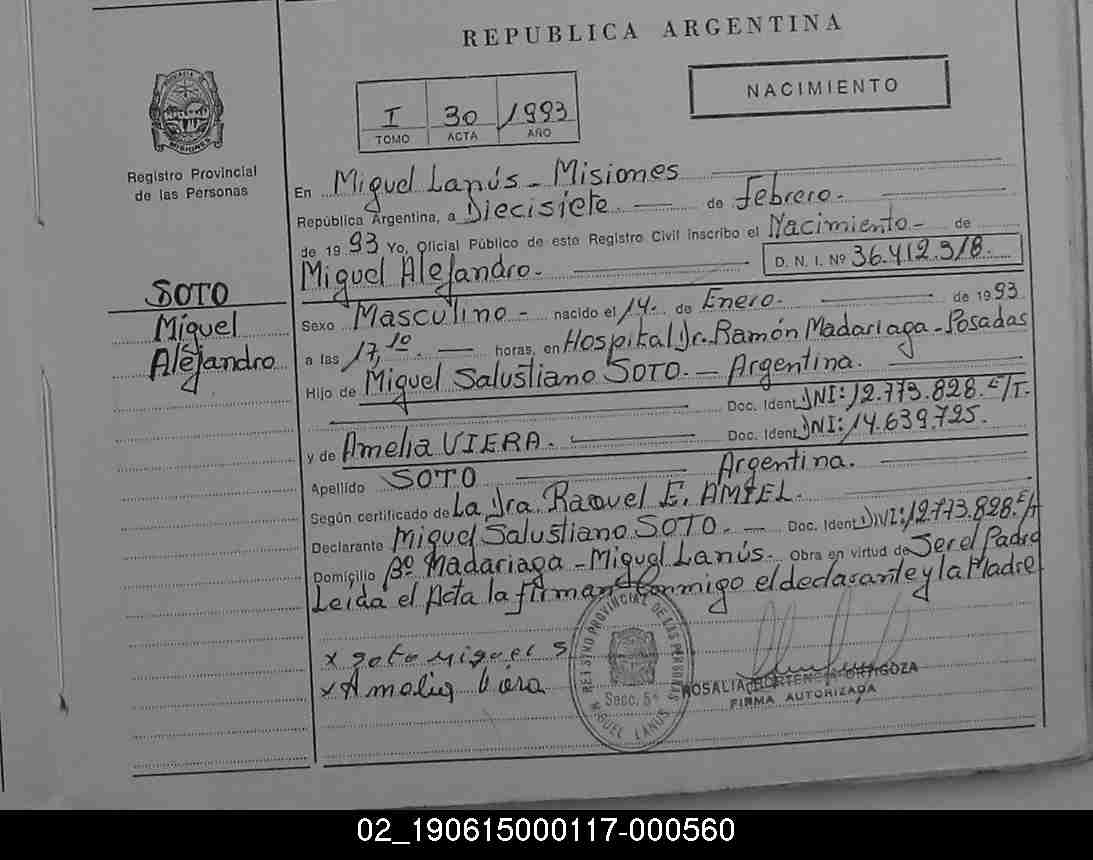 REPUBLICA ARGENTINA
NACIMIENTO
I 30 1993
TOMO ACTA AÑO
MISIONES
Registro Provincial
de las Personas
SOTO
Miguel
Alejandro
En Miguel Lanús - Misiones
República Argentina, a Diecisiete de Febrero.
de 19 93 Yo, Oficial Público de este Registro Civil inscribo el Nacimiento - de
Miguel Alejandro. D. N. I. Nº 36.412.918.
Sexo Masculino - nacido el 14. de Enero. de 19 93
a las 17,10 horas, en Hospital Dr. Ramón Madariaga - Posadas
Hijo de Miguel Salustiano SOTO. - Argentina.
Doc. Ident DNI: 12.773.828. E/T.
y de Amelia VIERA. Doc. Ident DNI: 14.639.725.
Apellido SOTO Argentina.
Según certificado de La Dra. Raquel E.
Declarante Miguel Salustiano SOTO. - Doc. Ident DNI: 12.773.828. E/T
Domicilio Bº Madariaga - Miguel Lanús. Obra en virtud de Ser el Padre
Leida el Acta la firman conmigo el declarante y la Madre
x soto miguel S
x Amelia
REGISTRO PROVINCIAL DE LAS PERSONAS
Secc. 5ª
MIGUEL LANUS
ROSALIA HORTENCIA
FIRMA AUTORIZADA
02_190615000117-000560